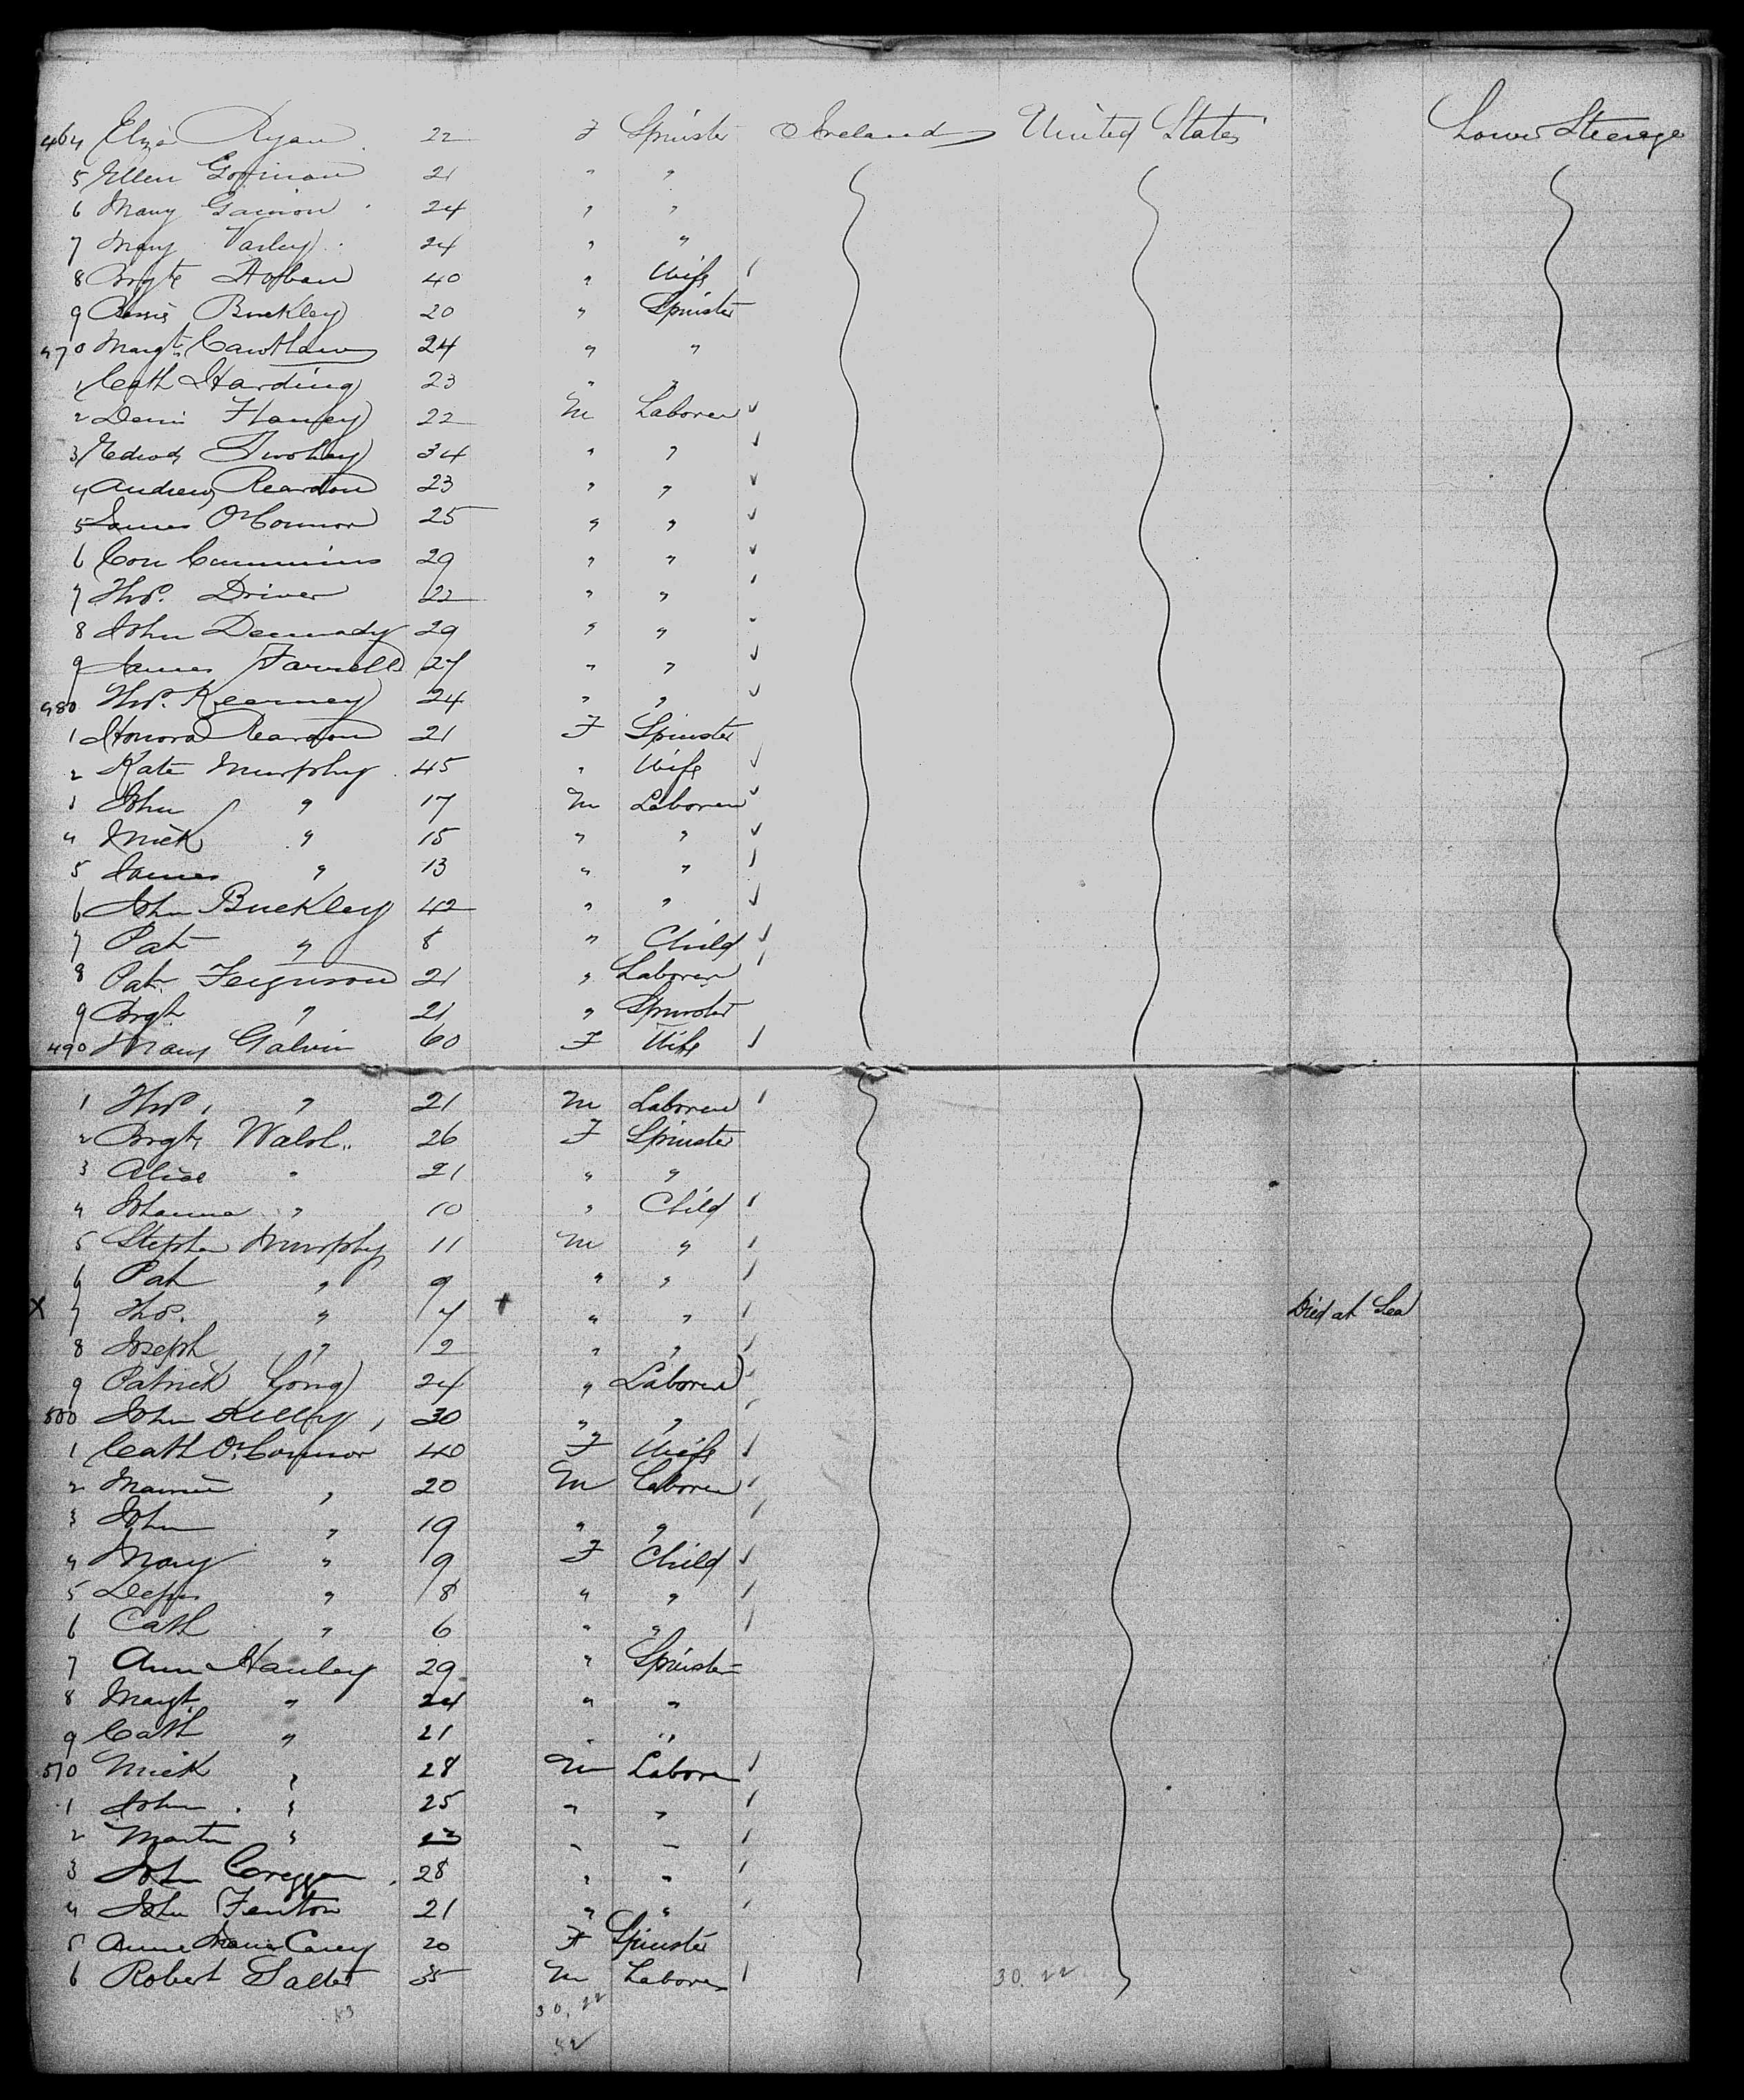 464 Eliza Ryan 22 F Spinster Ireland United States Lower Steerage
5 Ellen Gorman 21 " "
6 Mary Gannon 24 " "
7 Mary Varley 24 " "
8 Brgt Hoban 40 " Wife
9 Buckley 20 " Spinster
470 Margt 24 " "
1 Cath Harding 23 " "
2 Denis 22 M Laborer
3 Edwd Twohey 34 " "
4 Andrew Reardon 23 " "
5 James O'Connor 25 " "
6 Con Cummins 29 " "
7 Thos. Driver 22 " "
8 John 29 " "
9 James Farrell 27 " "
480 Thos. Kearney 24 " "
1 Honora Reardon 21 F Spinster
2 Kate Murphy 45 " Wife
3 John " 17 M Laborer
4 Mick " 15 " "
5 James " 13 " "
6 John Buckley 42 " "
7 Pat " 8 " Child
8 Pat Ferguson 21 " Laborer
9 Brgt " 21 " Spinster
490 Mary Galvin 60 F Wife
1 Thos. " 21 M Laborer
2 Brgt Walsh 26 F Spinster
3 Alice " 21 " "
4 Johanna " 10 " Child
5 Stephen Murphy 11 M "
6 Pat " 9 " "
X 7 Thos. " 7 + " " Died at Sea
8 Joseph " 2 " "
9 Patrick Long 24 " Laborer
500 John Kelly 30 " "
1 Cath O'Connor 40 F Wife
2 " 20 M Laborer
3 John " 19 " "
4 Mary " 9 F Child
5 " 8 " "
6 Cath " 6 " "
7 Ann Hanley 29 " Spinster
8 Margt " 24 " "
9 Cath " 21 " "
510 Mick " 28 M Laborer
1 John " 25 " "
2 Martin " 23 " "
3 John Creggan 28 " "
4 John Fenton 21 " "
5 Anne Maria Carey 20 F Spinster
6 Robert Salter 35 M Laborer 30. 22
30. 22